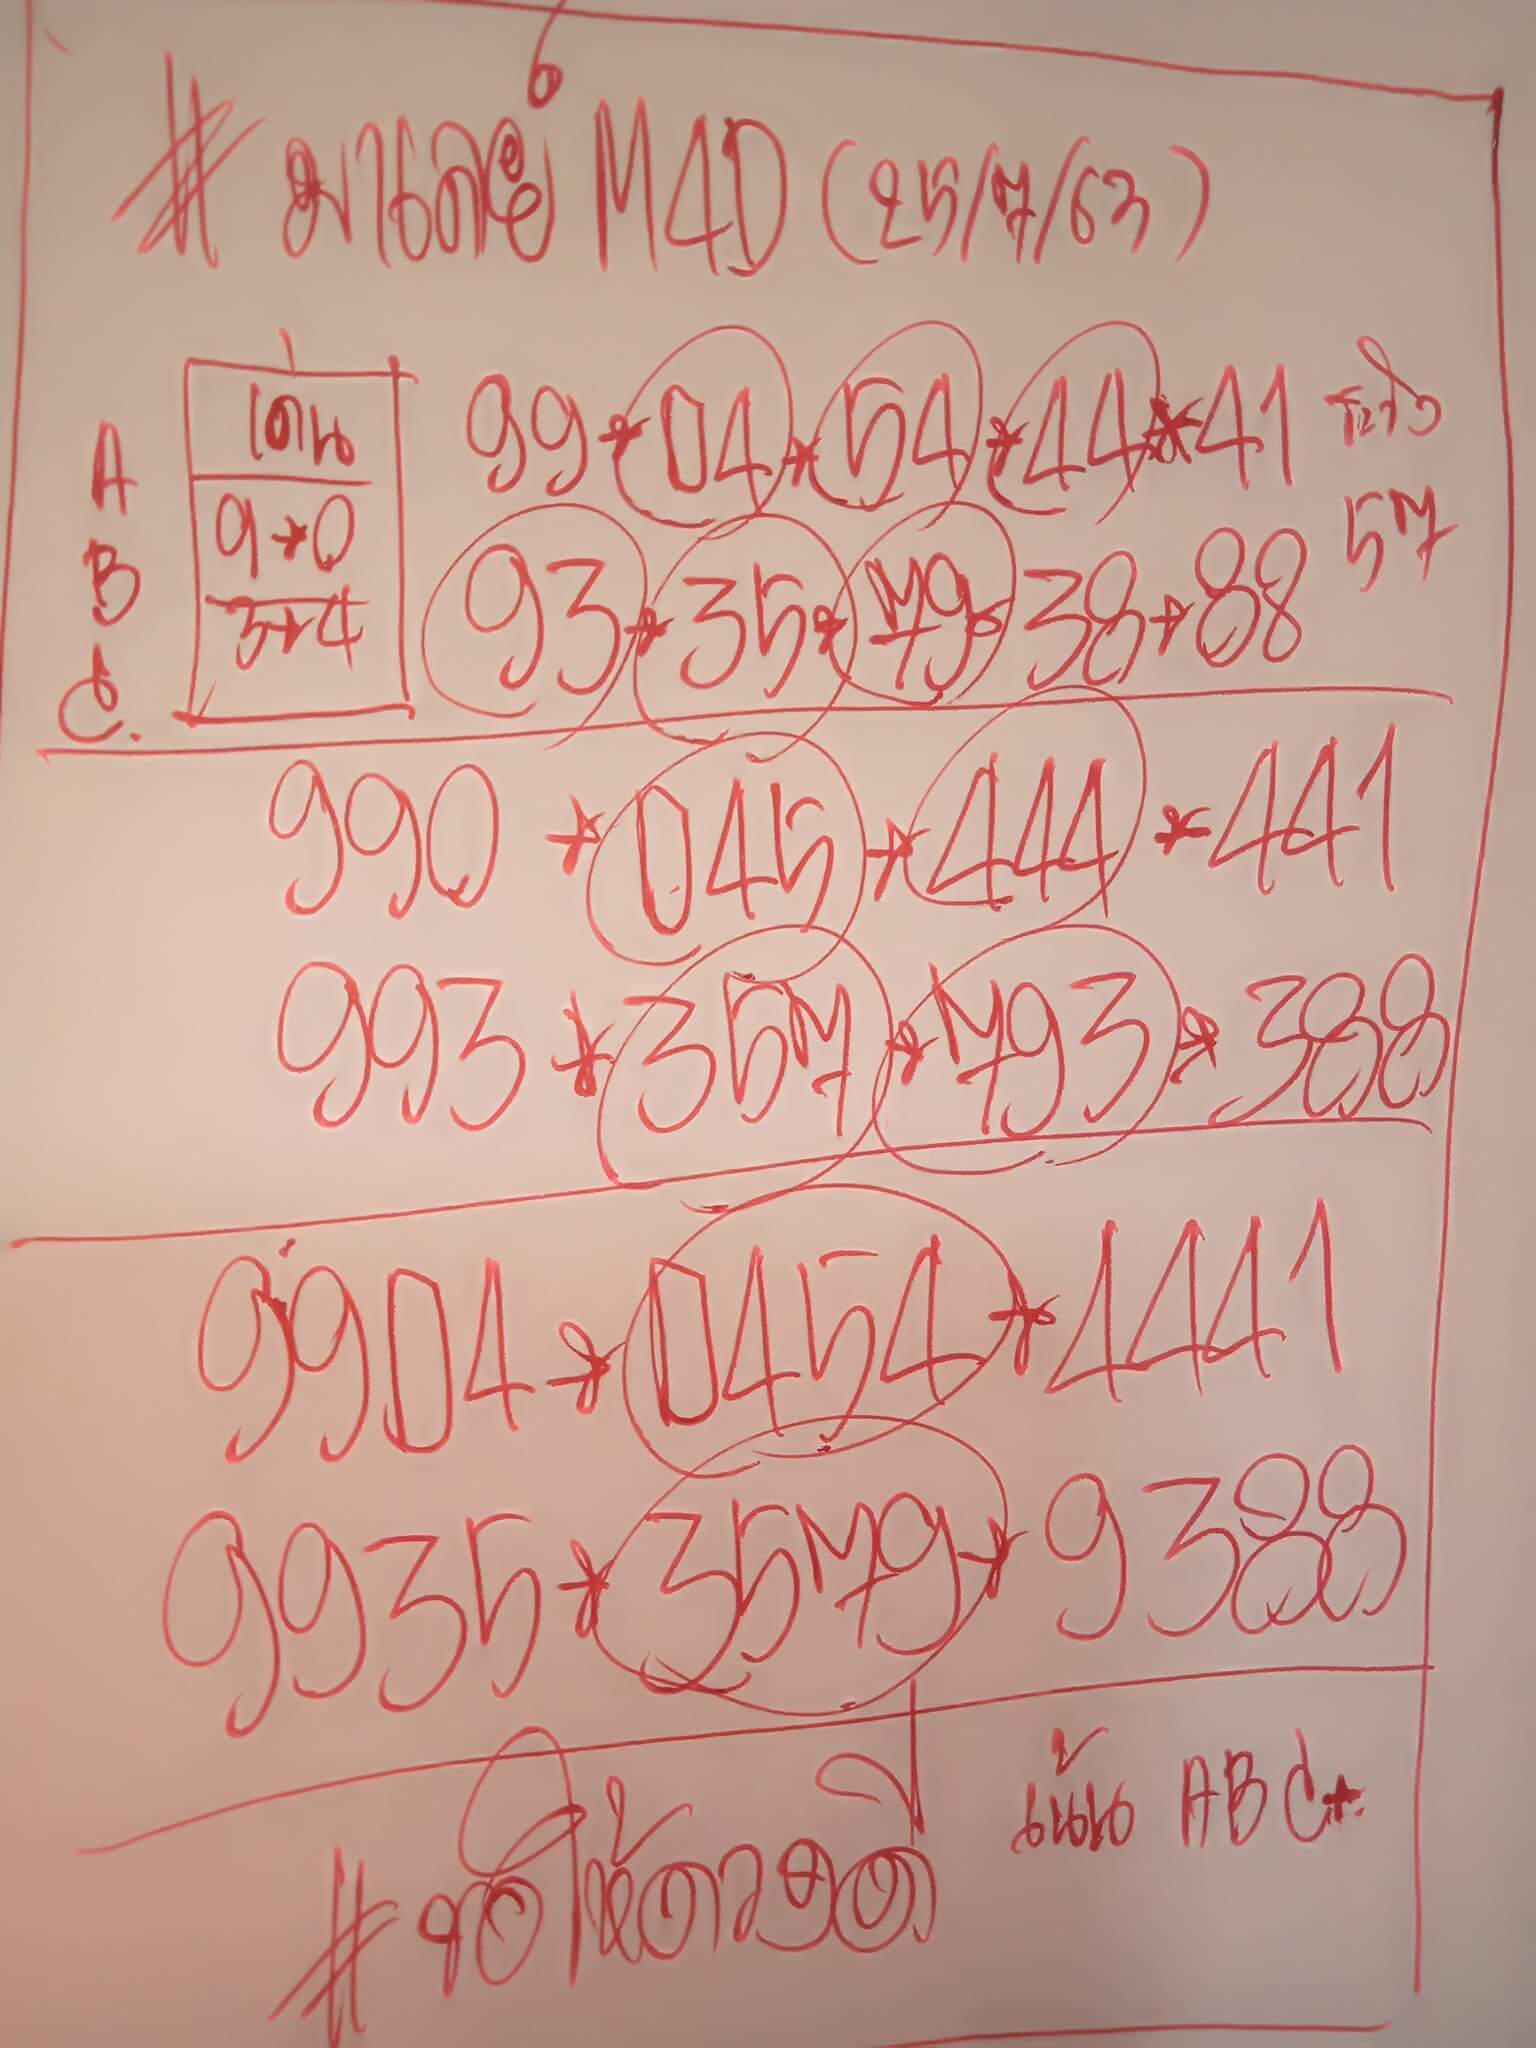 # มาเลย์ M4D (25/7/63)
เด่น
99*04*54*44*41 ระวัง
A
9*0
57
B
93*35*79*38*88
3*4
C.
990 * 045 * 444 * 441
993 * 357 * 793 * 388
9904 * 0454 * 4441
9935 * 3579 * 9388
เน้น ABC*
# ขอให้โชคดี